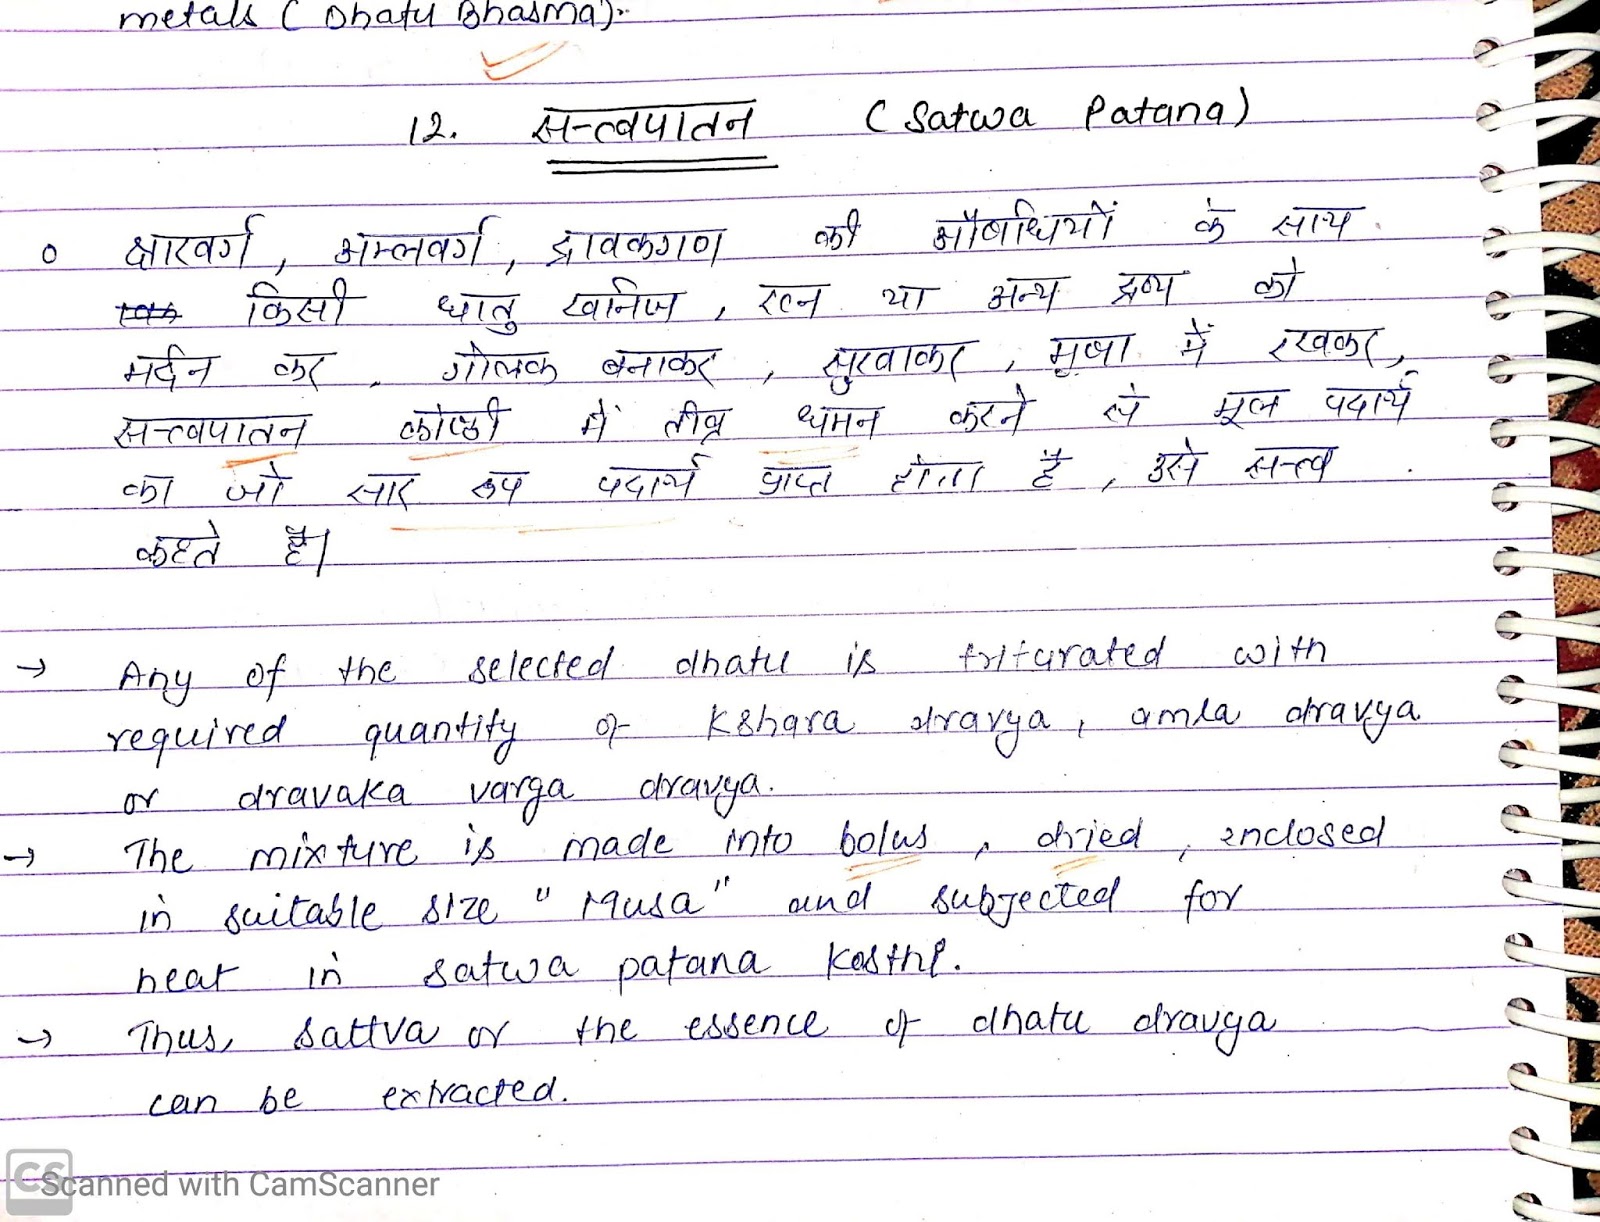 metals ( Dhatu Bhasma).
12. सत्त्वपातन ( Satwa Patana)
० क्षारवर्ग, अम्लवर्ग, द्रावकगण की औषधियों के साथ
किसी धातु खनिज, रत्न या अन्य द्रव्य को
मर्दन कर, गोलक बनाकर, सुखाकर, मूषा में रखकर,
सत्त्वपातन कोष्ठी में तीव्र धमन करने से मूल पदार्थ
का जो सार रूप पदार्थ प्राप्त होता है, उसे सत्त्व
कहते हैं।
→ Any of the selected dhatu is triturated with
required quantity of Kshara dravya, amla dravya
or dravaka varga dravya.
→ The mixture is made into bolus, dried, enclosed
in suitable size "Musa" and subjected for
heat in satwa patana kosthi.
→ Thus, sattva or the essence of dhatu dravya
can be extracted.
CS Scanned with CamScanner